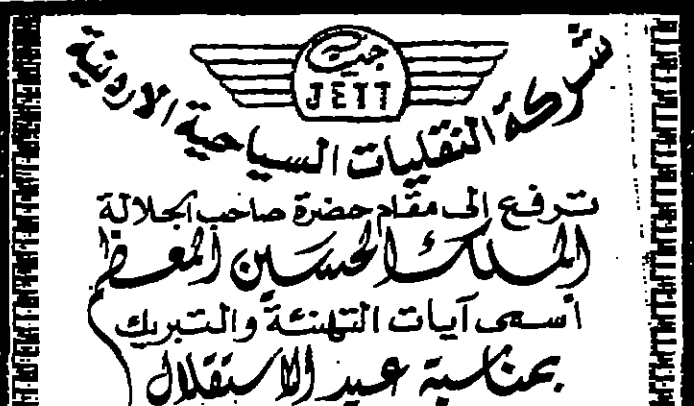 جيت
JETT
شركة النقليات السياحية الاردنية
ترفع إلى مقام حضرة صاحب الجلالة
الملك الحسين المعظم
أسمى آيات التهنئة والتبريك
بمناسبة عيد الاستقلال